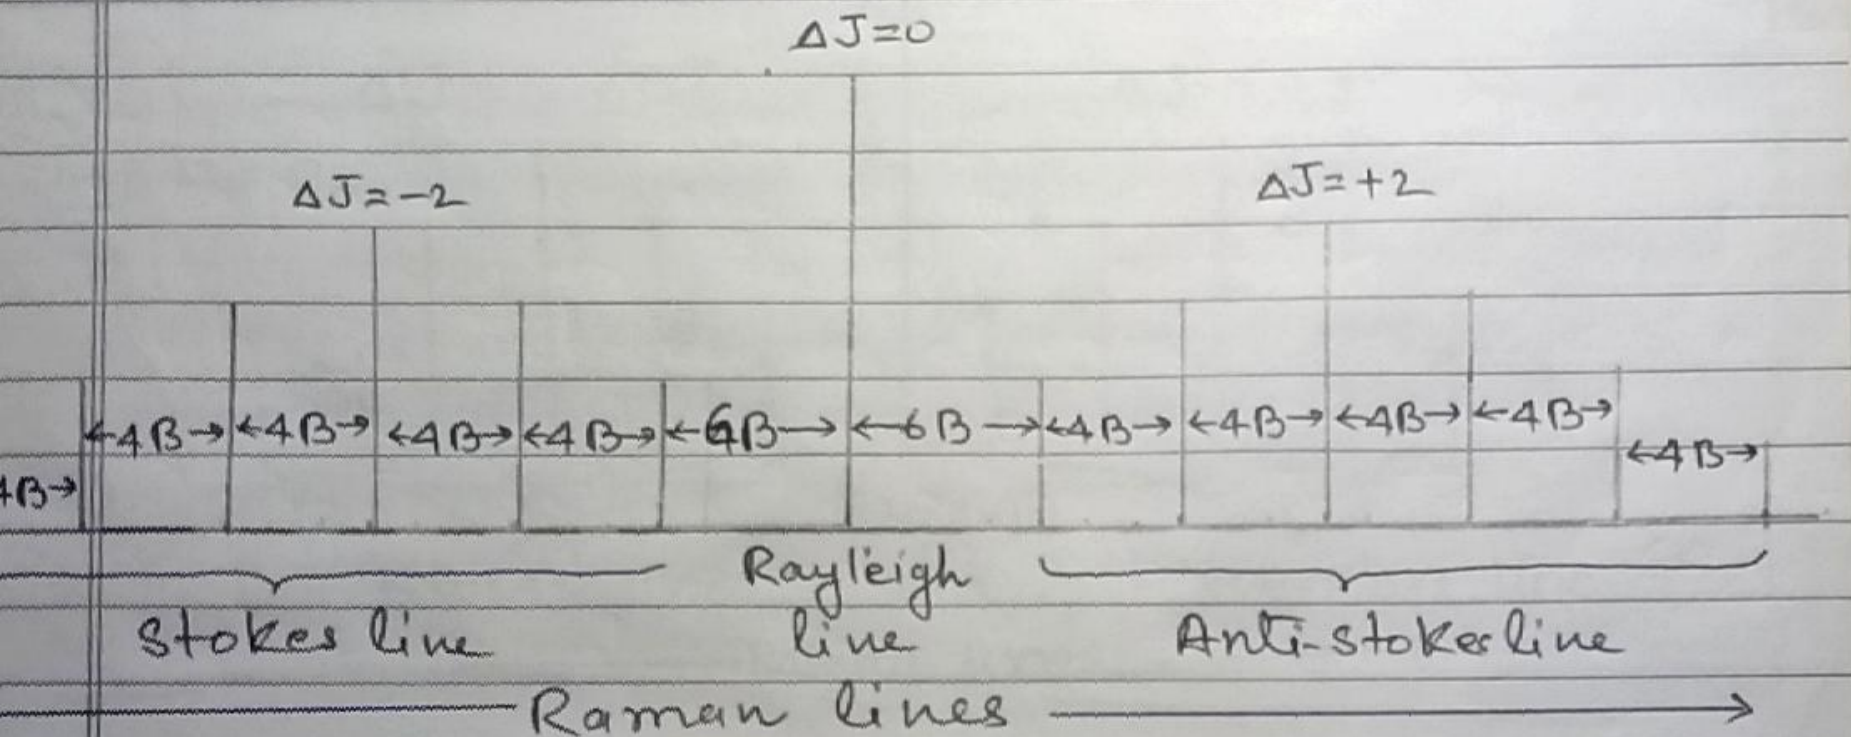 ΔJ=0
ΔJ=-2 ΔJ=+2
←4B→ ←4B→ ←4B→ ←4B→ ←6B→ ←6B→ ←4B→ ←4B→ ←4B→ ←4B→
4B→ ←4B→
Stokes line Rayleigh line Anti-stokes line
Raman lines →